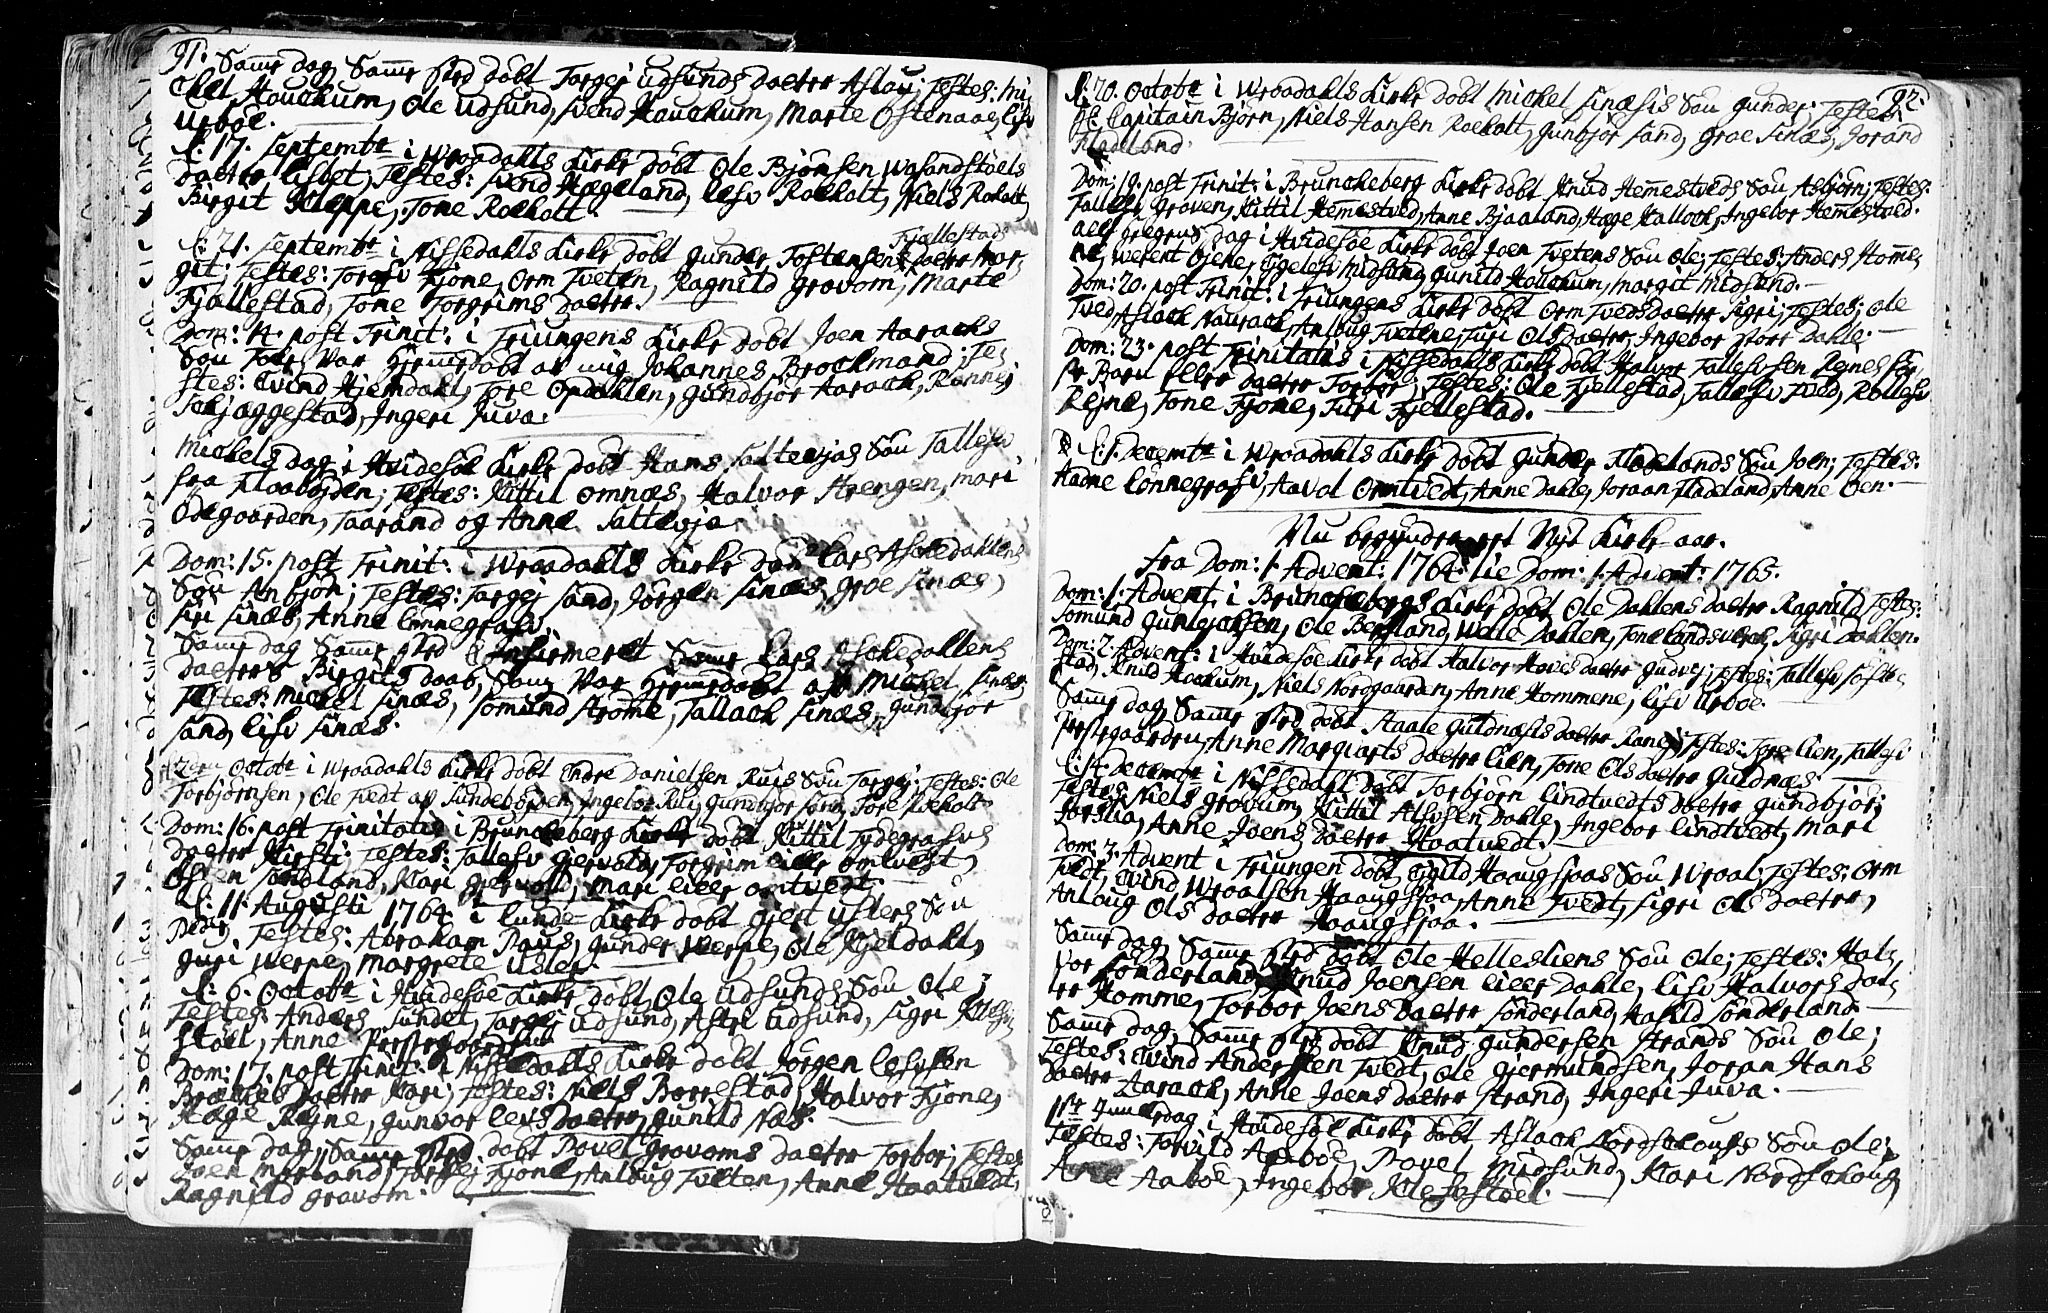 91. Samme dag, Samme sted döbt Torgej Udsunds daatter Aslou; Testes: Mi-
chel Hauckum, Ole Udsund, Svend Hauckum, Marte Östenaae, Lisv
Urböe.
d: 17. Septembr i Wraadahls Kirke döbt Ole Björnsen Wasandstöels
Daatter Lisbet, Testes: Svend Hægeland, Lefv Roeholt, Niels Roeholt,
Birgit Kleppe, Tone Roeholt.
d: 21. Septembr i Nissedahls Kirke döbt Gunder Tostensen Fjællestads daatter Mar-
git; Testes: Torgiv Fjone, Orm Tveten, Ragnild Grovom, Marte
Fjællestad, Tone Torgrims daatter.
Dom: 14. post Trinit: i Triungens Kirke döbt Joen Aarachs
Sön Tor, var Hjemmedöbt af mig Johannes Brockmand; Te-
stes: Evind Hjemdahl, Tore Opdahlen, Gundbjör Aarach, Rönnej
Schjaggestad, Ingeri Juva.
Michels dag i Hvidesöe Kirke döbt Hans Sattevjas Sön Tallefv
fra Flaabögden; Testes: Kittil Omnæs, Halvor Strengen, Mari
Ödegaarden, Taarand og Anne Sattevja.
Dom: 15. post Trinit: i Wraadahls Kirke döbt Lars Askedahlens
Sön Anbjön; Testes: Targej Sand, Jörgen Sinæs, Groe Sinæs,
Siri Sinæs, Anne Lönnegrafv.
Samme dag Samme sted Confirmeret Samme Lars Askedahlens
Daatters Birgits daab, Som var Hjemmedöbt af Michel Sinæs,
Testes: Michel Sinæs, Somund Strome, Tallach Sinæs, Gunbjör
Sand, Lisv Sinæs.
d 2den Octobr i Wraadahls Kirke döbt Endre Danielsen Ruis Sön Targej; Testes: Ole
Torbjörnsen, Ole Tvedt af Sundebögden, Ingebor Rui, Gundbjör Sand, Tore Roeholt
Dom: 16. post Trinitatis i Brunckeberg Kirke döbt Kittil Tydegrafvs
Daatter Kirsti; Testes: Tallefv Gjervold, Torgrim Eller Omtvedt,
Östen Sandland, Kari Gjervold, Mari Eller Omtvedt.
d: 11. Augusti 1764 i Lunde-Kirke döbt Giert Uslers Sön
Peder, Testes: Abraham Paus, Gunder Werpe, Ole Kjeldahl,
Guri Werpe, Margrete Usler.
d: 6. Octobr i Hvidesöe Kirke döbt Ole Udsunds Sön Ole;
Testes: Anders Sundet, Targej Udsund, Astri Udsund, Sigri
Stoel, Anne Prestegaarden
Dom: 17. post Trinit: i Nissedahls Kirke döbt Jörgen Lefvsen
Brækkes Daatter Kari; Testes: Niels Borrestad, Halvor Fjone,
Hæge Regne, Gunvor Levs Daatter, Gunild Næs.
Samme dag, Samme sted döbt Povel Grovoms Daatter Torbor; Testes
Joen Morland, Torgiej Fjone, Anlaug Tveten, Anne Haatvedt,
Ragnild Grovom.
92.
d: 20. Octobr i Wraadahls Kirke döbt Michel Sinæsis Sön Gunder; Testes:
Hr. Capitain Björn, Niels Hansen Roeholt, Gunbjör Sand, Groe Sinæs, Jorand
Fladeland.
Dom: 19. post Trinit: i Brunckeberg Kirke döbt Knud Hemmestveds Sön Asbjörn; Testes:
Tallefv Groven, Kittil Hemmestved, Anne Bjaaland, Hæge Kalloch, Ingebor Hemmestved.
Alle Helgens dag i Hvidesöe Kirke döbt Joen Tvetens Sön Ole; Testes: Anders Homme-
ne, Werent Öjene, Eggelefv Midsund, Gunild Hauckum, Margit Midsund.
Dom: 20. post Trinit: i Triungens Kirke döbt Orm Tveds Daatter Sigri; Testes: Ole
Tved, Aslach Naurach, Anlaug Tvetene, Turi Ols Daatter, Ingebor Store Dahle.
Dom: 23. post Trinitatis i Nissedahls Kirke döbt Halvor Tallefvsen Regnes för-
ste Barn Eller Daatter Torbor; Testes: Ole Fjællestad, Tallefv Tved, Rollefv
Regne, Tone Fjone, Turi Fjellestad.
d: 1. Decembr i Wraadahls Kirke döbt Gunder Fladelands Sön Joen; Testes:
Aadne Lönnegrafv, Aavol Omtvedt, Anne Dahle, Joraan Fladeland, Anne Oen.
Nu begyndes et Nyt Kirke-aar.
fra Dom: 1. Advent: 1764 til Dom: 1. Advent: 1765.
Dom: 1. Advent. i Brunckebergs Kirke döbt Ole Dahlens Daatter Ragnild, Testes:
Somund Gunlejksen, Ole Bergland, Welle Dahlen, Tone Landsverk, Sigri Dahlen.
Dom: 2. Advent: i Hvidesöe Kirke döbt Halvor Hoves Daatter Gudvej; Testes: Tallefv Söfte-
stad, Knud Hauckum, Niels Nordgaarden, Anne Hommene, Lisv Urböe.
Samme dag, Samme sted döbt Staale Guldnæsis Daatter Ranej; Testes: Tore Lien, Tallefv
Prestegaarden, Anne Margrarts Daatter Lien, Tone Ols Daatter Guldnæs.
d: 14. Decembr i Nissedahl döbt Torbjörn Lindtvedts Daatter Gundbjör;
Testes: Niels Grovum, Kittil Alfvsen Dahle, Ingebor Lindtvedt, Mari
Forslia, Anne Joens Daatter Haatvedt.
Dom: 3. Advent i Triungen döbt Egild Haaugsjaas Sön Wraal; Testes: Orm
Tvedt, Evind Wraalsen Haaugsjaa, Anne Tvedt, Sigri Ols Daatter,
Anlaug Ols Daatter Haaugsjaa.
Samme dag, Samme sted döbt Ole Helleliens Sön Ole; Testes: Hal-
vor Sönderland, Knud Joensen Eller Dahle, Lisv Halvors Dat-
ter Homme, Torbor Joens Daatter Sönderland, Aashild Sönderland.
Samme dag, Samme sted döbt Knud Gundersen Strands Sön Ole;
Testes: Evind Andersen Tvedt, Ole Gjermundsen, Joran Hans
Daatter Aarach, Anne Joens Daatter Strand, Ingeri Juva.
1ste Juuledag i Hvidesöe Kirke döbt Aslach Nordschougs Sön Ole;
Testes: Torvild Aaböe, Povel Midsund, Kari Nordschoug,
Anne Aaböe, Ingebor Klefstoel.